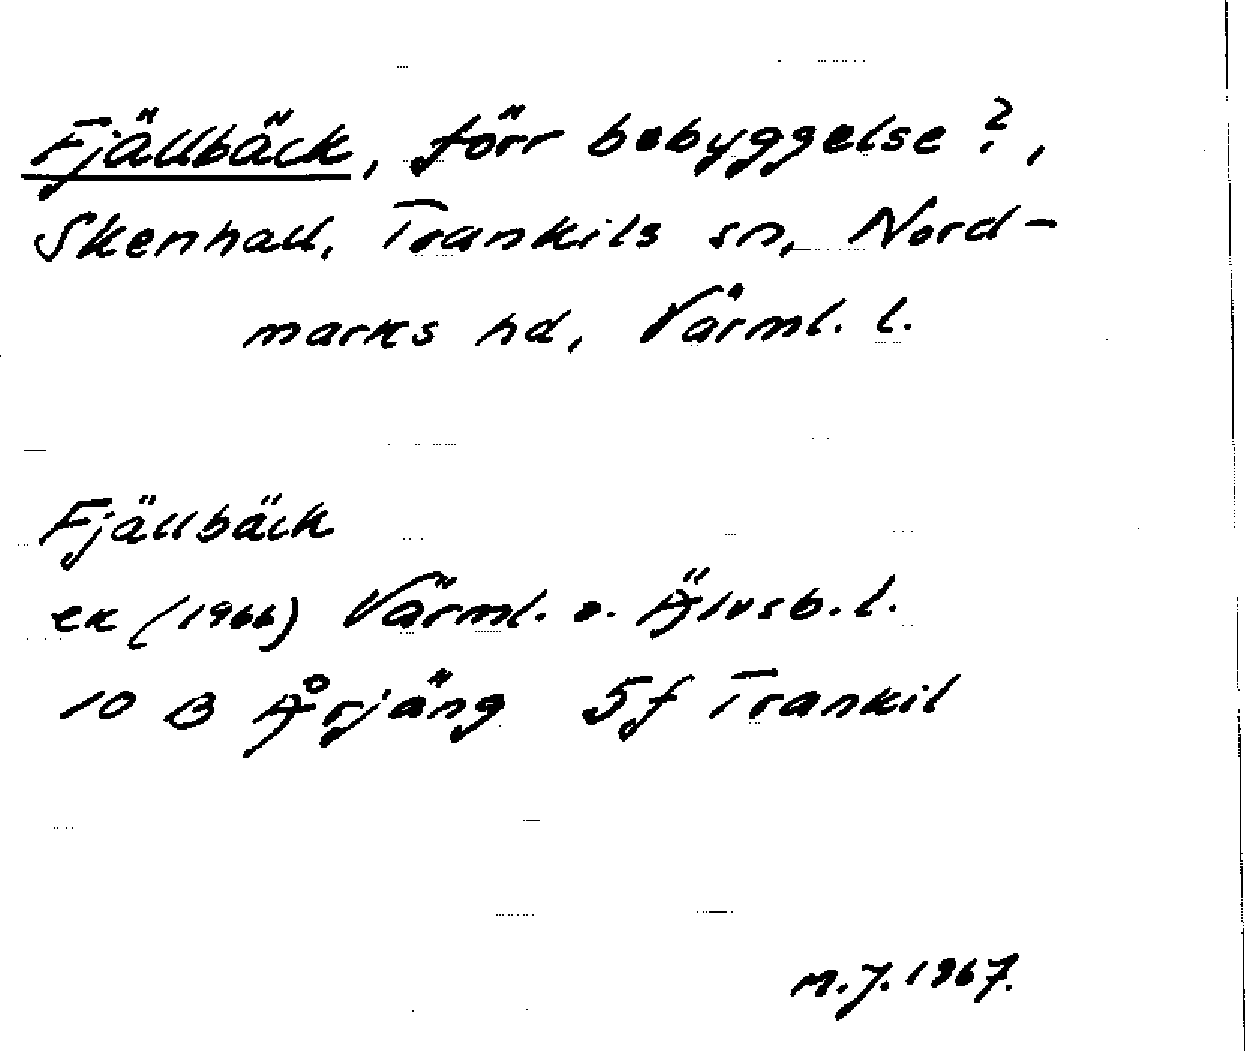 Fjällbäck, förr bebyggelse?,
Skenhall, Trankils sn, Nord-
marks hd, Värml. l.
Fjällbäck
ek (1966) Värml. o. Älvsb. l.
10 B Årjäng 5f Trankil
M.J. 1967.